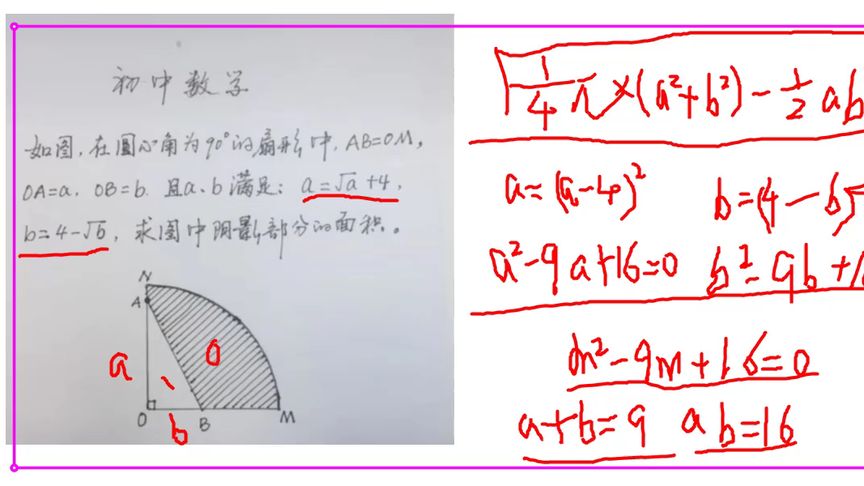 初中数学
如图,在圆心角为90°的扇形中,AB=OM,
OA=a, OB=b. 且a、b满足: a=√a+4,
b=4-√b, 求图中阴影部分的面积。
N
A
a
O
b
B
M
1/4 π×(a²+b²)-1/2 ab
a=(a-4)² b=(4-b)
a²-9a+16=0 b²-9b+1
m²-9m+16=0
a+b=9 ab=16